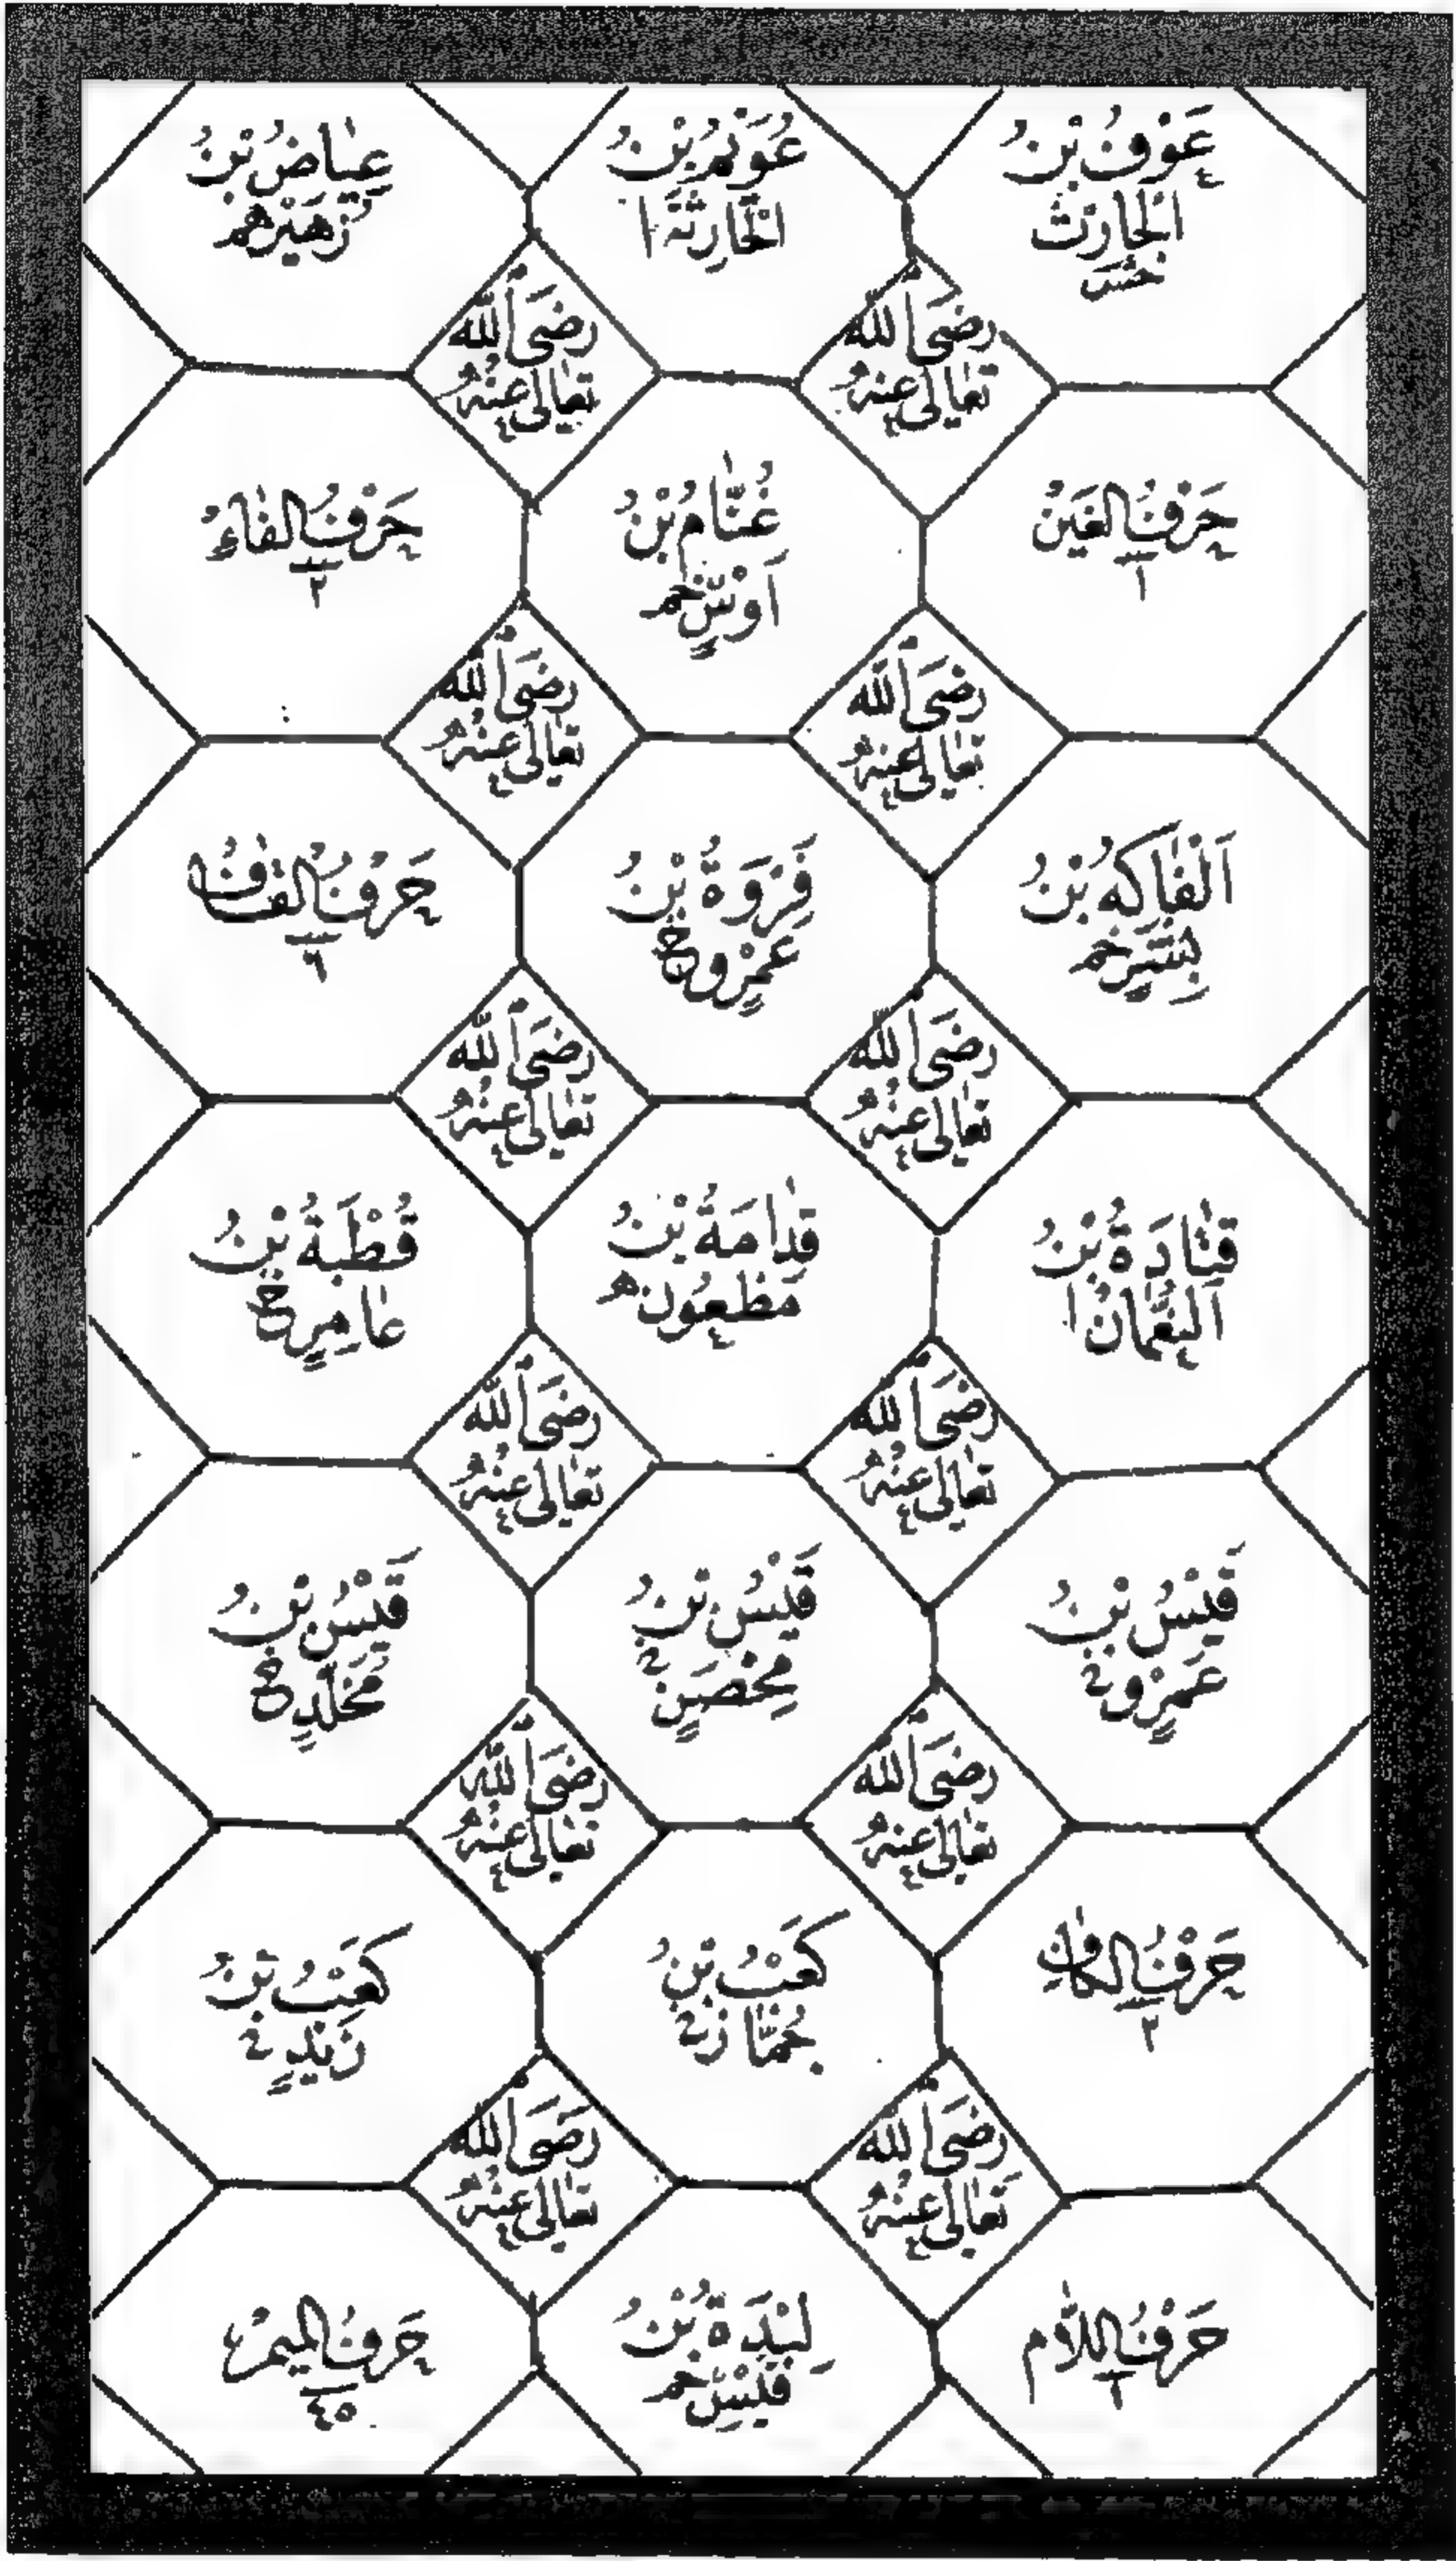 عَوْفُ بْنُ
الْحَارِثِ
عُوَيْمُرُ بْنُ
الْحَارِثَةِ ا
عِيَاضُ بْنُ
زُهَيْرٍ هم
رَضِيَ اللّٰهُ
تَعَالٰى عَنْهُ
رَضِيَ اللّٰهُ
تَعَالٰى عَنْهُ
حَرْفُ الْغَيْنِ
١
غَنَّامُ بْنُ
اَوْسٍ خم
حَرْفُ الْفَاءِ
٢
رَضِيَ اللّٰهُ
تَعَالٰى عَنْهُ
رَضِيَ اللّٰهُ
تَعَالٰى عَنْهُ
اَلْفَاكِهُ بْنُ
بِشْرٍ خم
فَرْوَةُ بْنُ
عَمْرٍو خ
حَرْفُ الْقَافِ
٦
رَضِيَ اللّٰهُ
تَعَالٰى عَنْهُ
رَضِيَ اللّٰهُ
تَعَالٰى عَنْهُ
قَتَادَةُ بْنُ
النُّعْمَانِ ا
قُدَامَةُ بْنُ
مَظْعُونٍ ه
قُطْبَةُ بْنُ
عَامِرٍ خ
رَضِيَ اللّٰهُ
تَعَالٰى عَنْهُ
رَضِيَ اللّٰهُ
تَعَالٰى عَنْهُ
قَيْسُ بْنُ
عَمْرٍو
قَيْسُ بْنُ
مِحْصَنٍ
قَيْسُ بْنُ
مُخَلَّدٍ خ
رَضِيَ اللّٰهُ
تَعَالٰى عَنْهُ
رَضِيَ اللّٰهُ
تَعَالٰى عَنْهُ
حَرْفُ الْكَافِ
٢
كَعْبُ بْنُ
جُمَّازٍ
كَعْبُ بْنُ
زَيْدٍ
رَضِيَ اللّٰهُ
تَعَالٰى عَنْهُ
رَضِيَ اللّٰهُ
تَعَالٰى عَنْهُ
حَرْفُ اللَّامِ
١
لِبْدَةُ بْنُ
قَيْسٍ خم
حَرْفُ الْمِيْمِ
٤٥